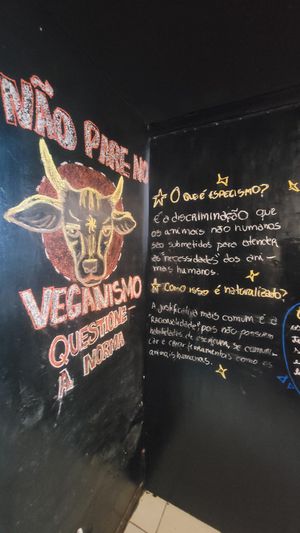 NÃO PARE NO
VEGANISMO
QUESTIONE
A NORMA
O QUE É ESPECISMO?
É A DISCRIMINAÇÃO QUE
OS ANIMAIS NÃO HUMANOS
SÃO SUBMETIDOS PARA ATENDER
AS "NECESSIDADES" DOS ANI-
MAIS HUMANOS.
COMO ISSO É NATURALIZADO?
A JUSTIFICATIVA MAIS COMUM É A
"RACIONALIDADE", POIS NÃO POSSUEM
HABILIDADES DE ESCREVER, SE COMUNI-
CAR E CRIAR FERRAMENTAS COMO OS
ANIMAIS HUMANOS.